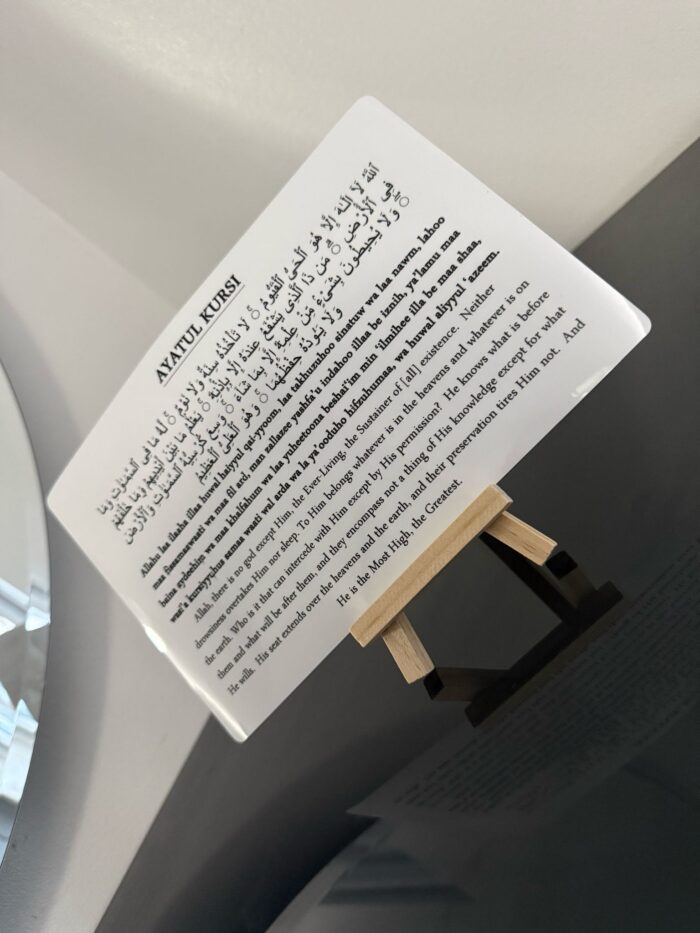 AYATUL KURSI
ٱللَّهُ لَآ إِلَٰهَ إِلَّا هُوَ ٱلْحَىُّ ٱلْقَيُّومُ ۚ لَا تَأْخُذُهُۥ سِنَةٌ وَلَا نَوْمٌ ۚ لَّهُۥ مَا فِى ٱلسَّمَٰوَٰتِ وَمَا
فِى ٱلْأَرْضِ ۗ مَن ذَا ٱلَّذِى يَشْفَعُ عِندَهُۥٓ إِلَّا بِإِذْنِهِۦ ۚ يَعْلَمُ مَا بَيْنَ أَيْدِيهِمْ وَمَا خَلْفَهُمْ
ۖ وَلَا يُحِيطُونَ بِشَىْءٍ مِّنْ عِلْمِهِۦٓ إِلَّا بِمَا شَآءَ ۚ وَسِعَ كُرْسِيُّهُ ٱلسَّمَٰوَٰتِ وَٱلْأَرْضَ
وَلَا يَـُٔودُهُۥ حِفْظُهُمَا ۚ وَهُوَ ٱلْعَلِىُّ ٱلْعَظِيمُ
Allahu laa ilaaha illaa huwal haiyyul qai-yyoom, laa takhuzuhoo sinatuw wa laa nawm, lahoo
maa fissamaawaati wa maa fil ard, man zallazee yashfa'u indahoo illaa be iznih, ya'lamu maa
baina aydeehim wa maa khalfahum wa laa yuheetoona beshai'im min 'ilmihee illa be maa shaa,
wasi'a kursiyyuhus samaa waati wal arda wa la ya'ooduho hifzuhumaa, wa huwal aliyyul 'azeem.
Allah, there is no god except Him, the Ever-Living, the Sustainer of [all] existence. Neither
drowsiness overtakes Him nor sleep. To Him belongs whatever is in the heavens and whatever is on
the earth. Who is it that can intercede with Him except by His permission? He knows what is before
them and what will be after them, and they encompass not a thing of His knowledge except for what
He wills. His seat extends over the heavens and the earth, and their preservation tires Him not. And
He is the Most High, the Greatest.